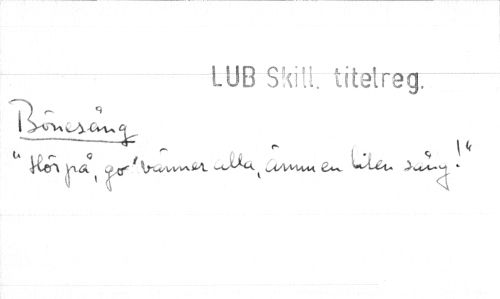 LUB Skill. titelreg.
Bönesång
"Hör på, go' vänner alla, ämm en liten sång!"